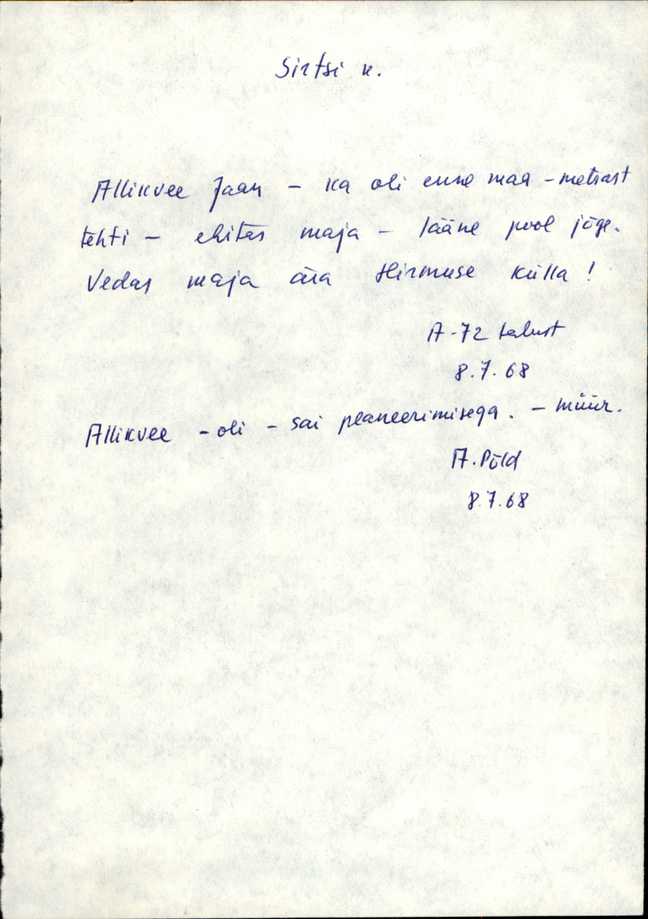 Sirtsi k.
Allikvee Jaan – ka oli enne maa – metsast
tehti – ehitas maja – lääne pool jõge.
Vedas maja ära Hirmuse külla!
A-72 talust
8.7.68
Allikvee – oli – sai planeerimisega. – müür.
A. Põld
8.7.68